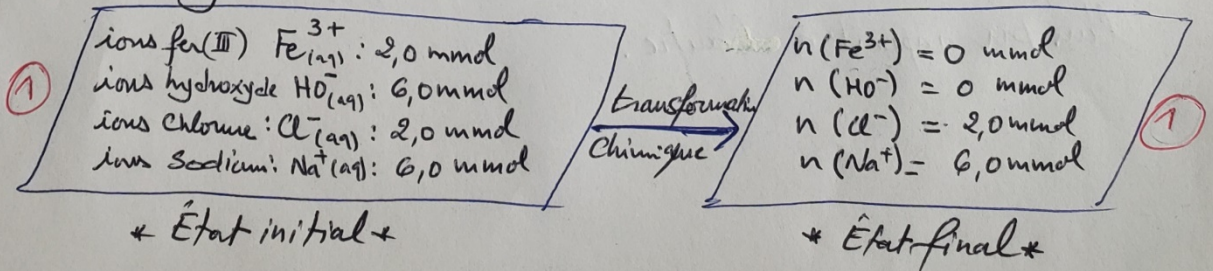 1
ions fer(III) Fe³⁺(aq) : 2,0 mmol
ions hydroxyde HO⁻(aq) : 6,0 mmol
ions Chlorure : Cl⁻(aq) : 2,0 mmol
ions Sodium : Na⁺(aq) : 6,0 mmol
* État initial *
transformation
Chimique
n (Fe³⁺) = 0 mmol
n (HO⁻) = 0 mmol
n (Cl⁻) = 2,0 mmol
n (Na⁺) = 6,0 mmol
1
* État final *